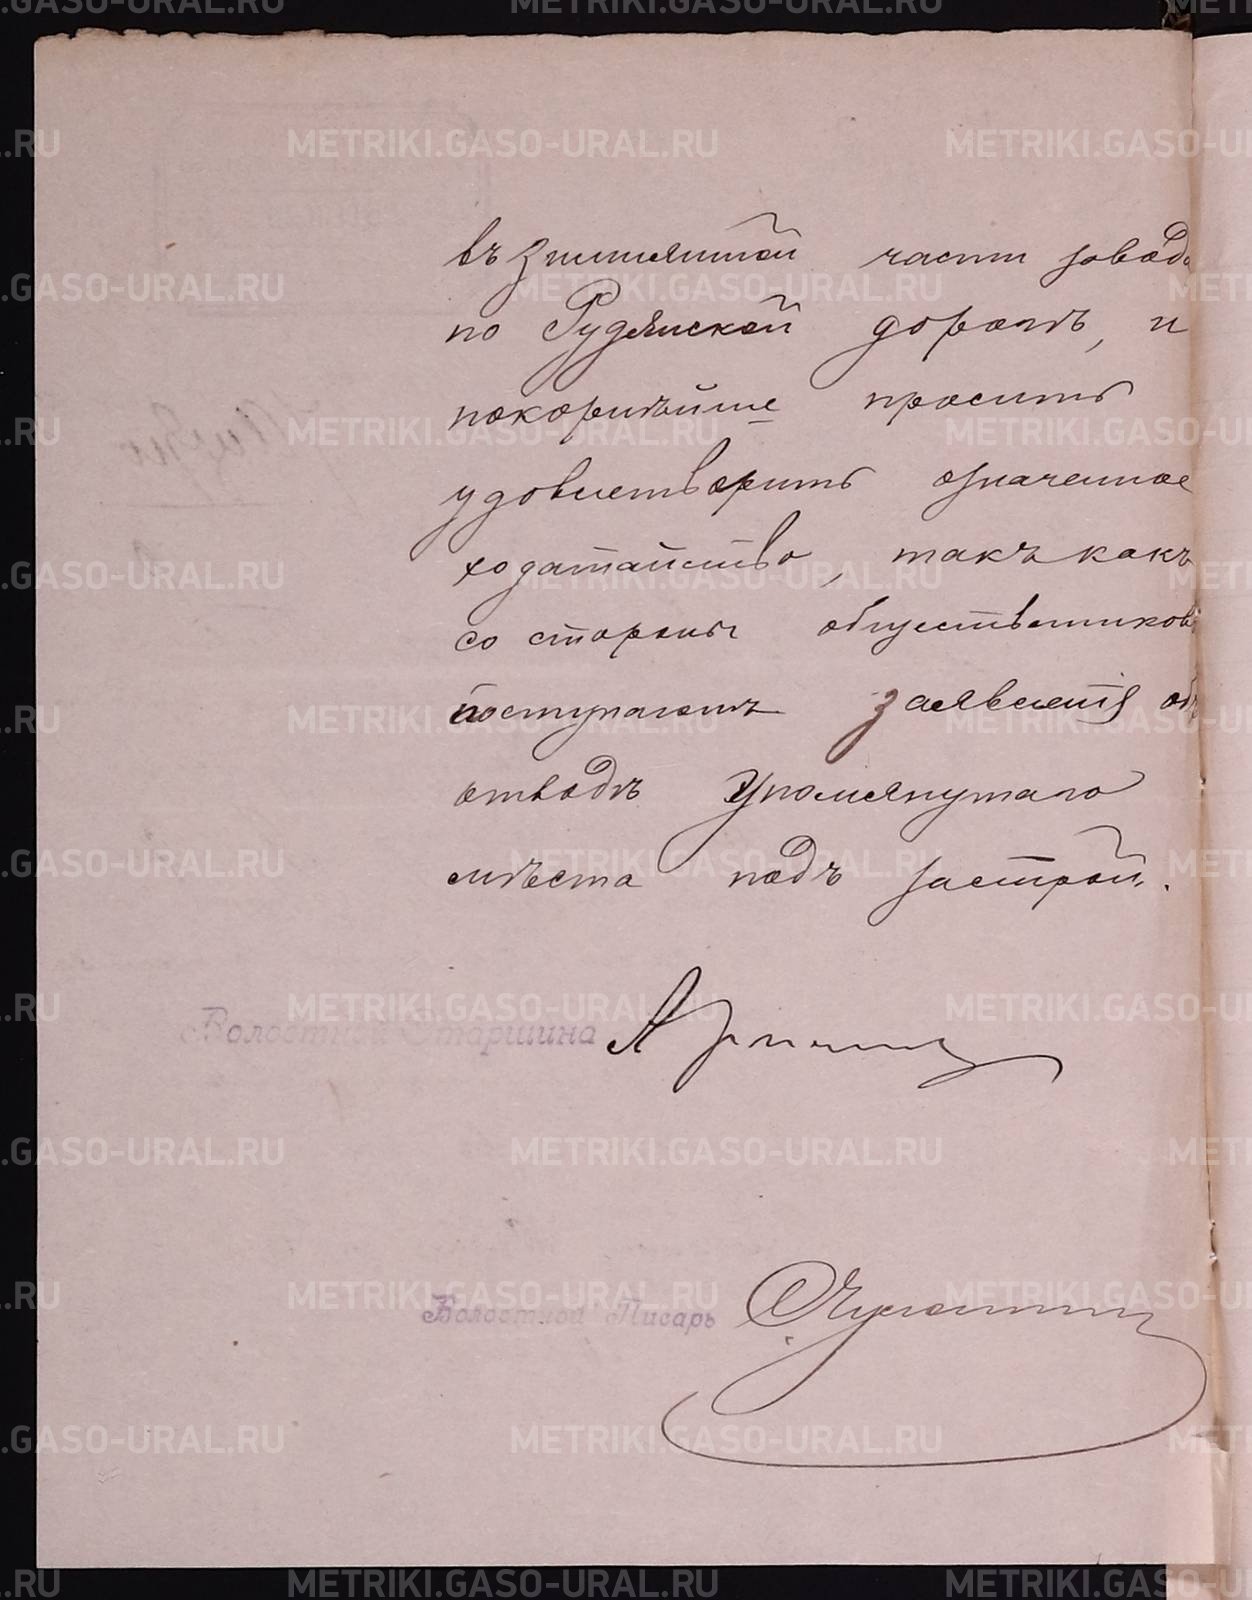 въ части завода
по Рудянской дорогѣ, и
покорнѣйше просить
удовлетворить означенное
ходатайство, такъ какъ
со стороны общественниковъ
поступаютъ заявленія объ
отводѣ упомянутаго
мѣста подъ застрой.
Волостной Старшина
Волостной Писарь
METRIKI.GASO-URAL.RU